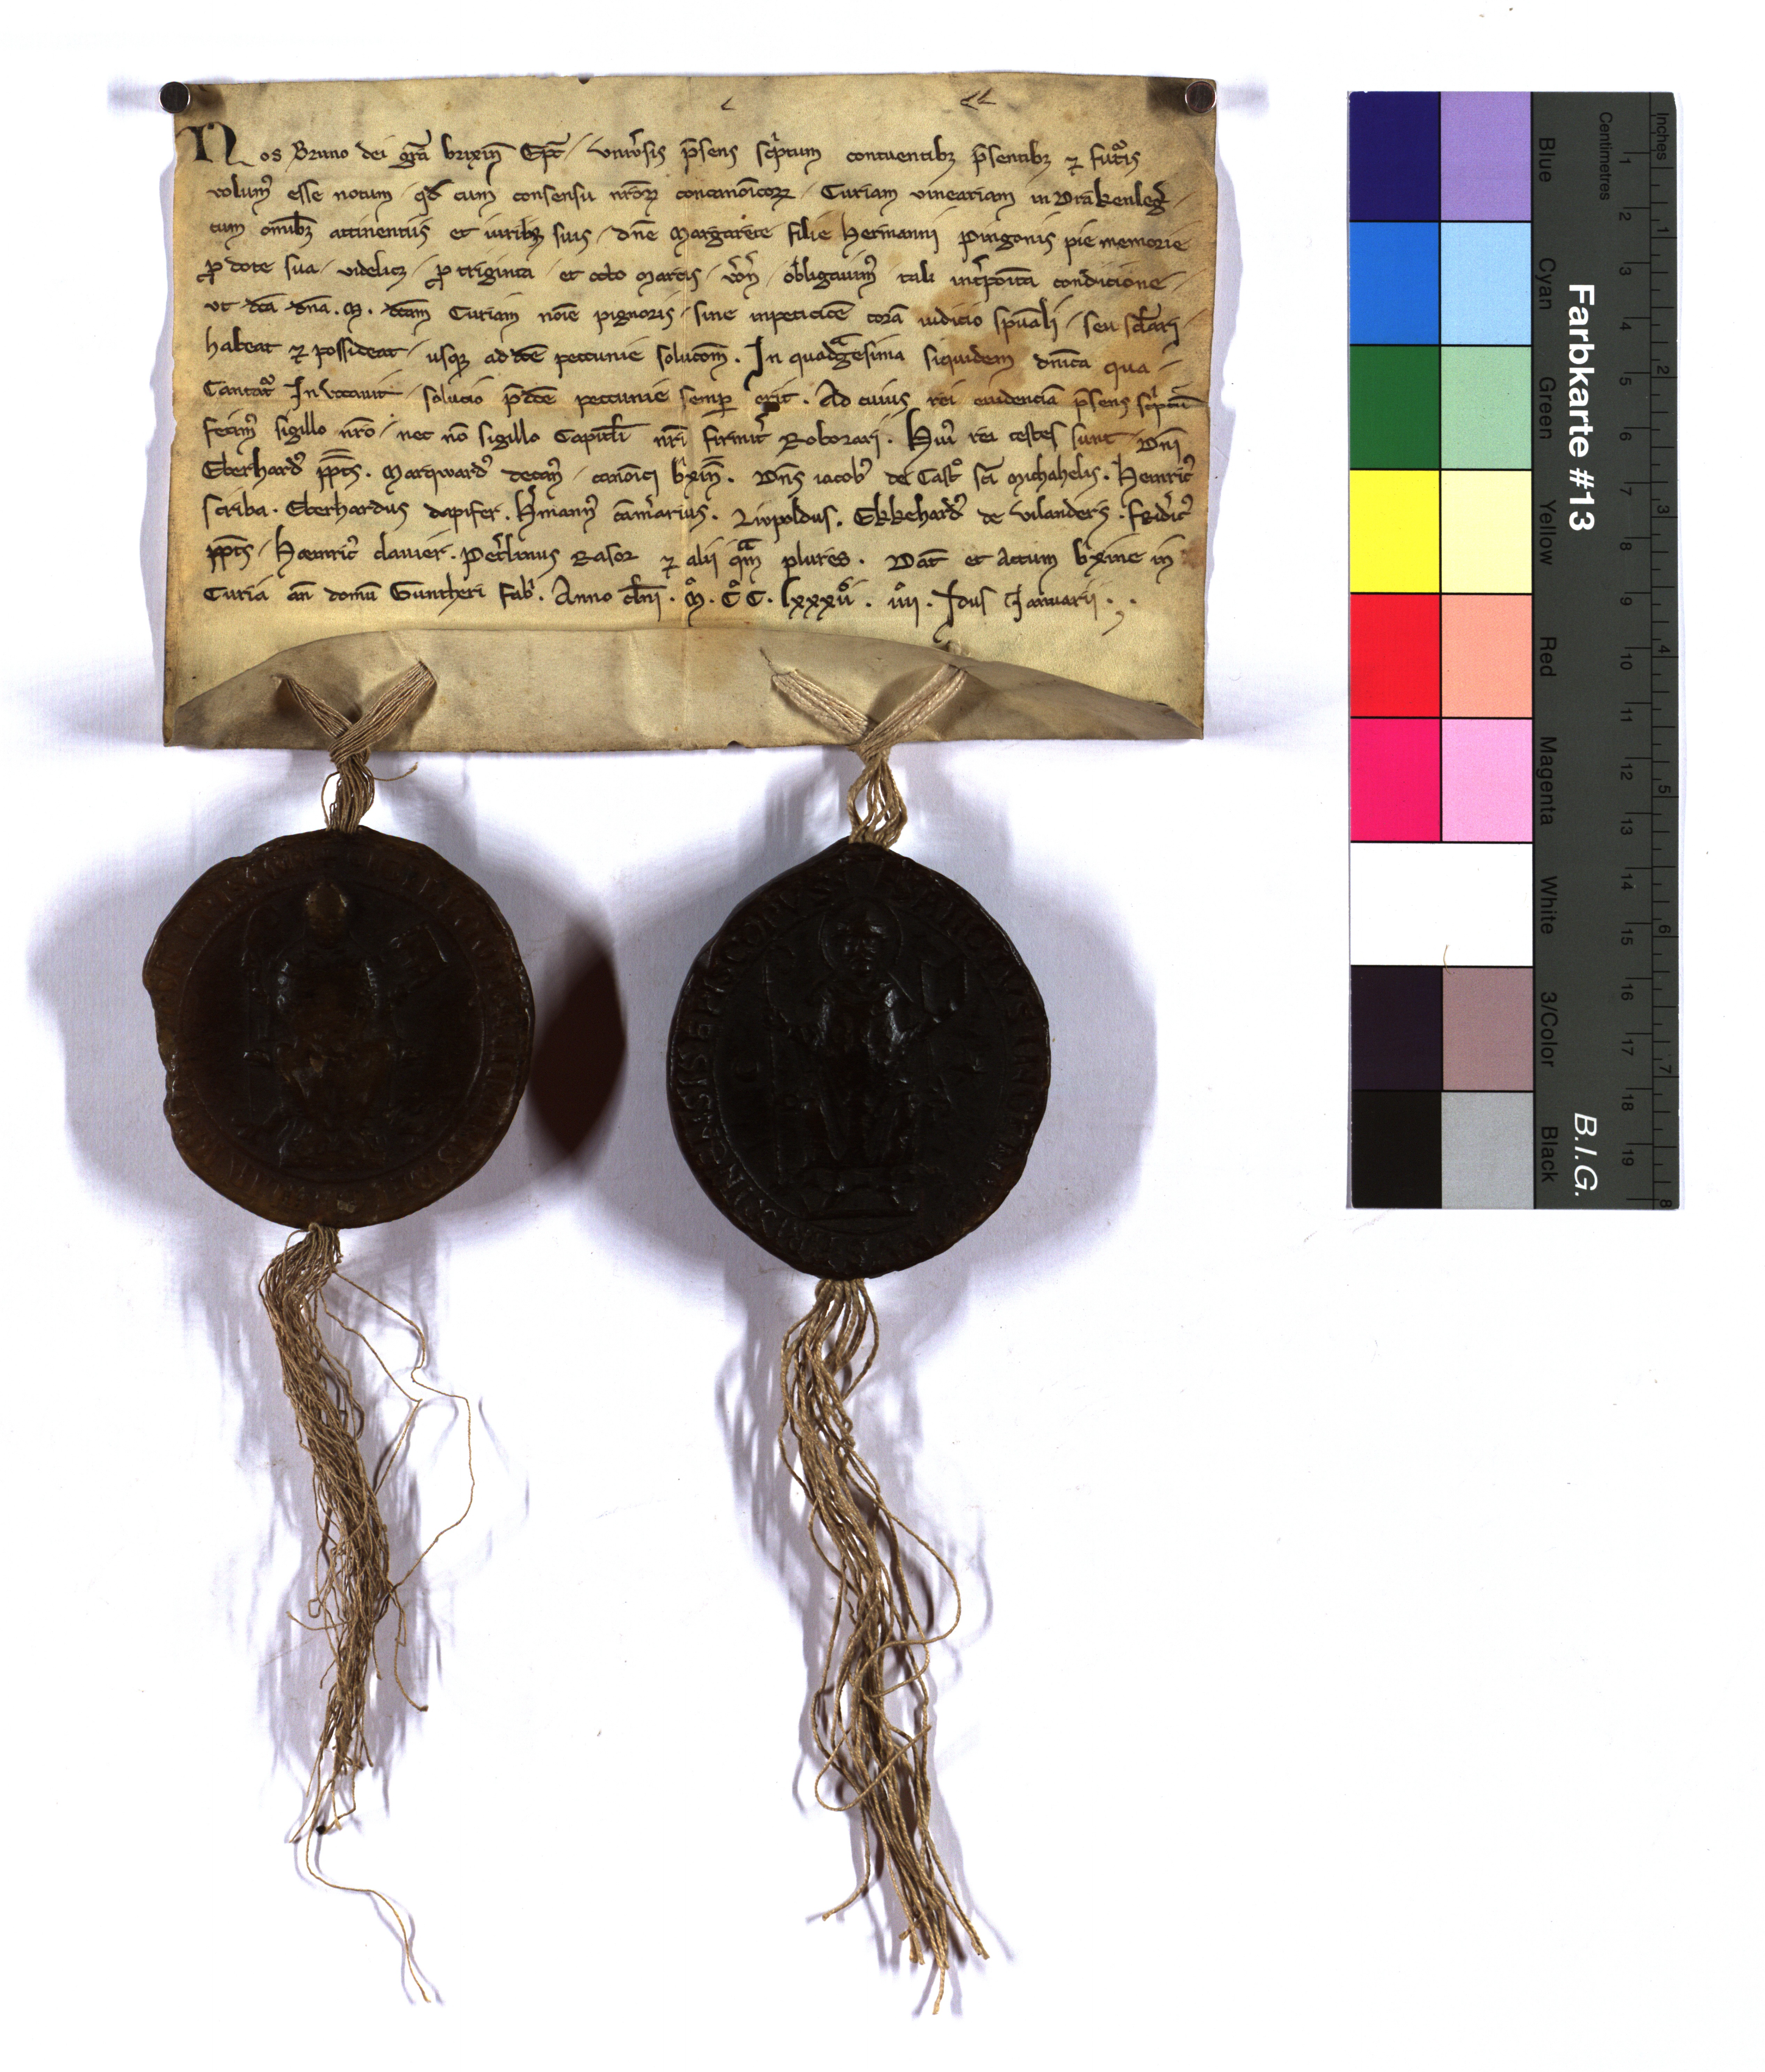 Nos Bruno dei gr̄a brixin̄ Ep̄c / vniu̓sis p̄sens sc'ptum contuentibꝫ p̄sentibꝫ ⁊ fut᷑is
volum᷒ esse notum / qd̓ cum consensu nr̄oꝝ concanōicoꝝ / Curiam vineariam in Drakenleg̓ /
cum om̄ibꝫ attinentiis et iuribꝫ suis / dn̄e Margarete filie Hermanni Pingonis pie memorie
ꝓ dote sua / videlicꝫ / ꝓ triginta / et octo marcis / v̓on̓ / obligauim᷒ tali int̓poīta condicione /
vt dc̄a dn̄a . M . dc̄am Curiam noīe pignoris / sine inpeticōe corā iudicio sp̄uali / seu sc̄lari /
habeat ⁊ possideat / usqꝫ ad dc̄e peccunie solucōm . In quadᵃgesima siquidem dn̄ica qua /
Cantat᷑ Inuocauit / solucio p̄dc̄e peccunie semꝑ erit . Ad cuius rei euidenciā p̄sens sc'ptū
fecim᷒ sigillo nr̄o / nec nō sigillo Capitl̄i nr̄i firmit̓ Roborari . Hui᷒ rei testes sunt Dn̄i
Eberhard᷒ pp̄ts . Marqward᷒ decan᷒ / canōici b'xin̄ . Dn̄s iacob᷒ de Castº sc̄i Michahelis . Heinric᷒
scriba . Eberhardus dapifer . H̓mann᷒ cam̓arius . Liupoldus . Ekkehard᷒ de Vilanders . Frid̓ic᷒
pp̄ts / Hæinric᷒ clauier . Pet̓linus Rasor ⁊ alii qᵃm plures . Dat̄ et Actum b'xine in
Curia an̄ domū Guntheri Fab' . Anno dn̄i . Mº . Cº C . lxxxuiº . iiii . Idus Januarii . .
Farbkarte #13
B.I.G.
Blue
Cyan
Green
Yellow
Red
Magenta
White
3/Color
Black
Centimetres
1 2 3 4 5 6 7 8 9 10 11 12 13 14 15 16 17 18 19
Inches
1 2 3 4 5 6 7 8